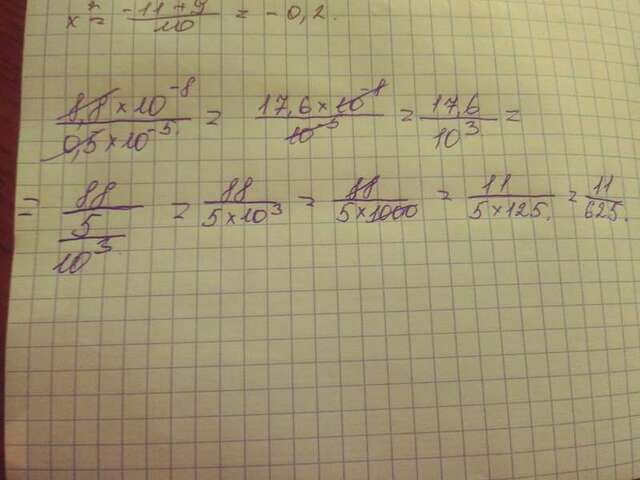 x₂ = (-11+9)/20 = -0,2.
(8,8×10⁻⁸)/(0,5×10⁻⁵) = (17,6×10⁻⁸)/(10⁻⁵) = 17,6/10³ =
= (88/5)/10³ = 88/(5×10³) = 88/(5×1000) = 11/(5×125) = 11/625.